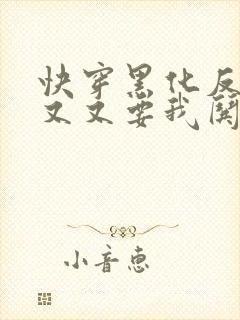 快穿黑化反
又又要我关
小音恵